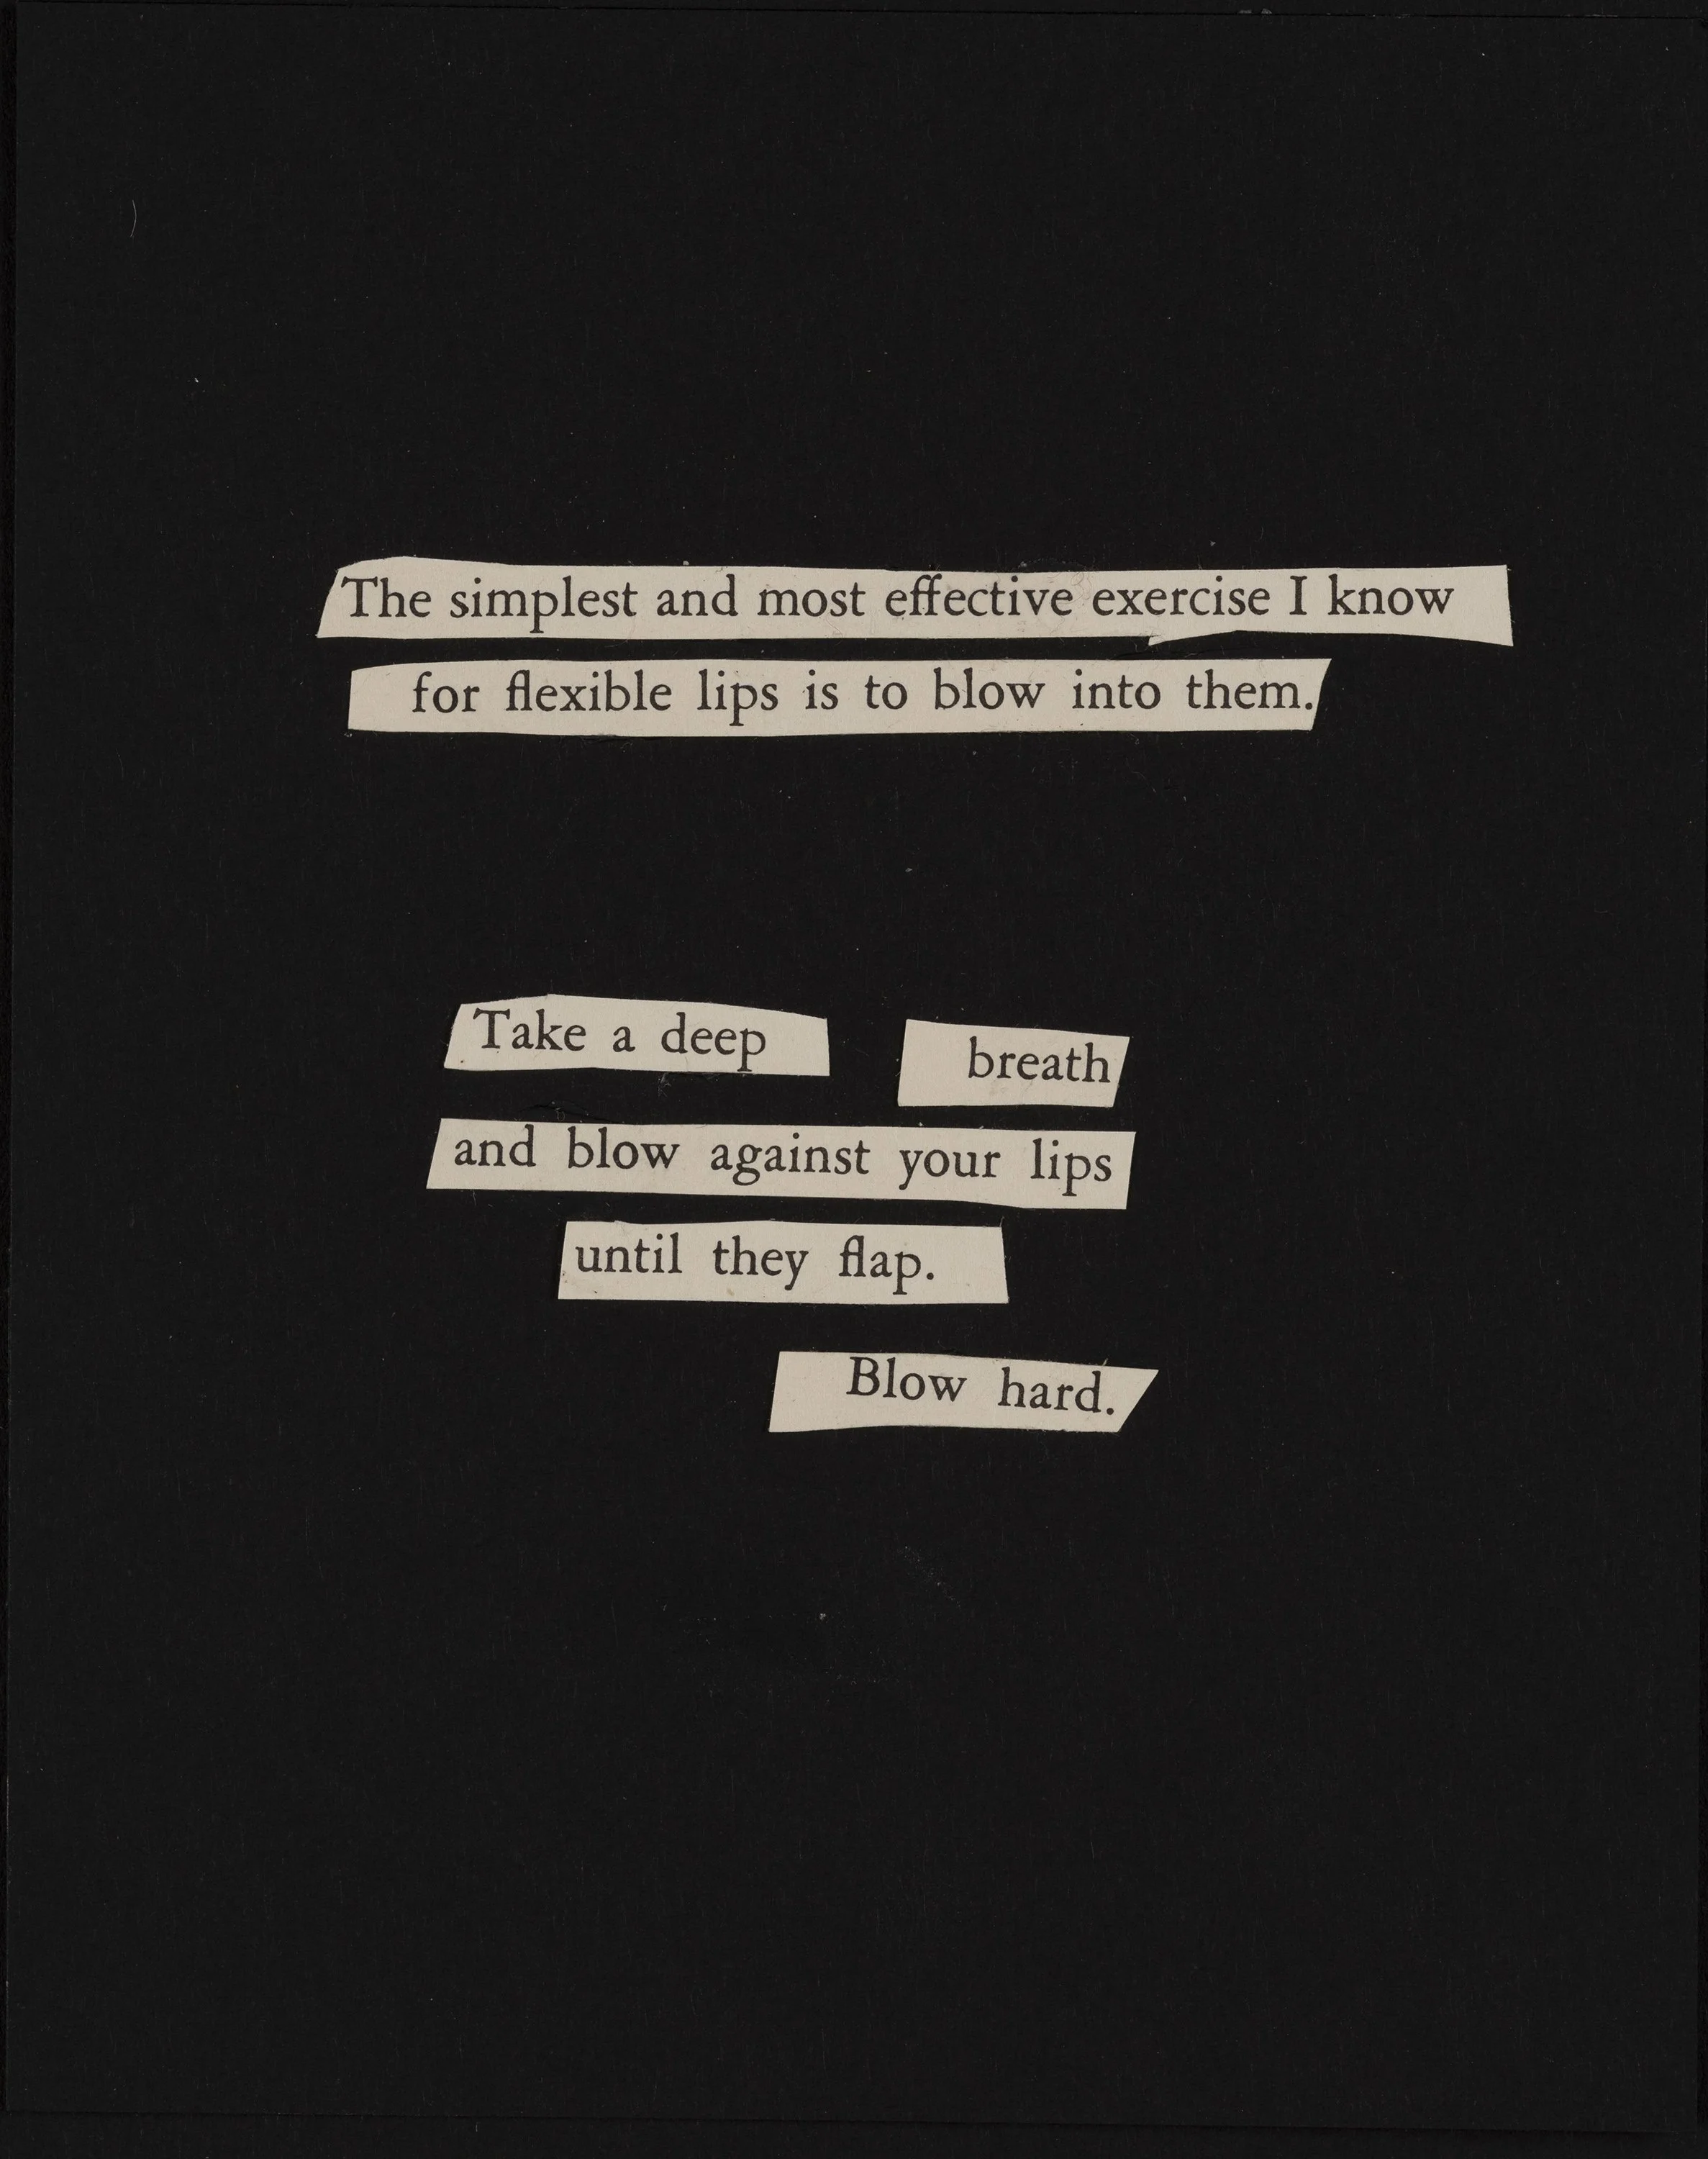 The simplest and most effective exercise I know
for flexible lips is to blow into them.
Take a deep breath
and blow against your lips
until they flap.
Blow hard.